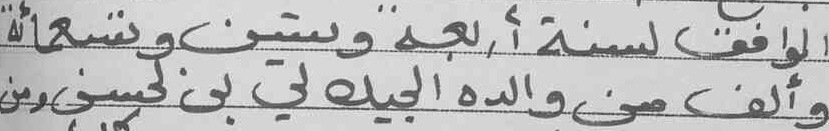 الوافق لسنة أربعة وستين وتسعمائة
وألف من والده الجيلالي بن لحسن ومن